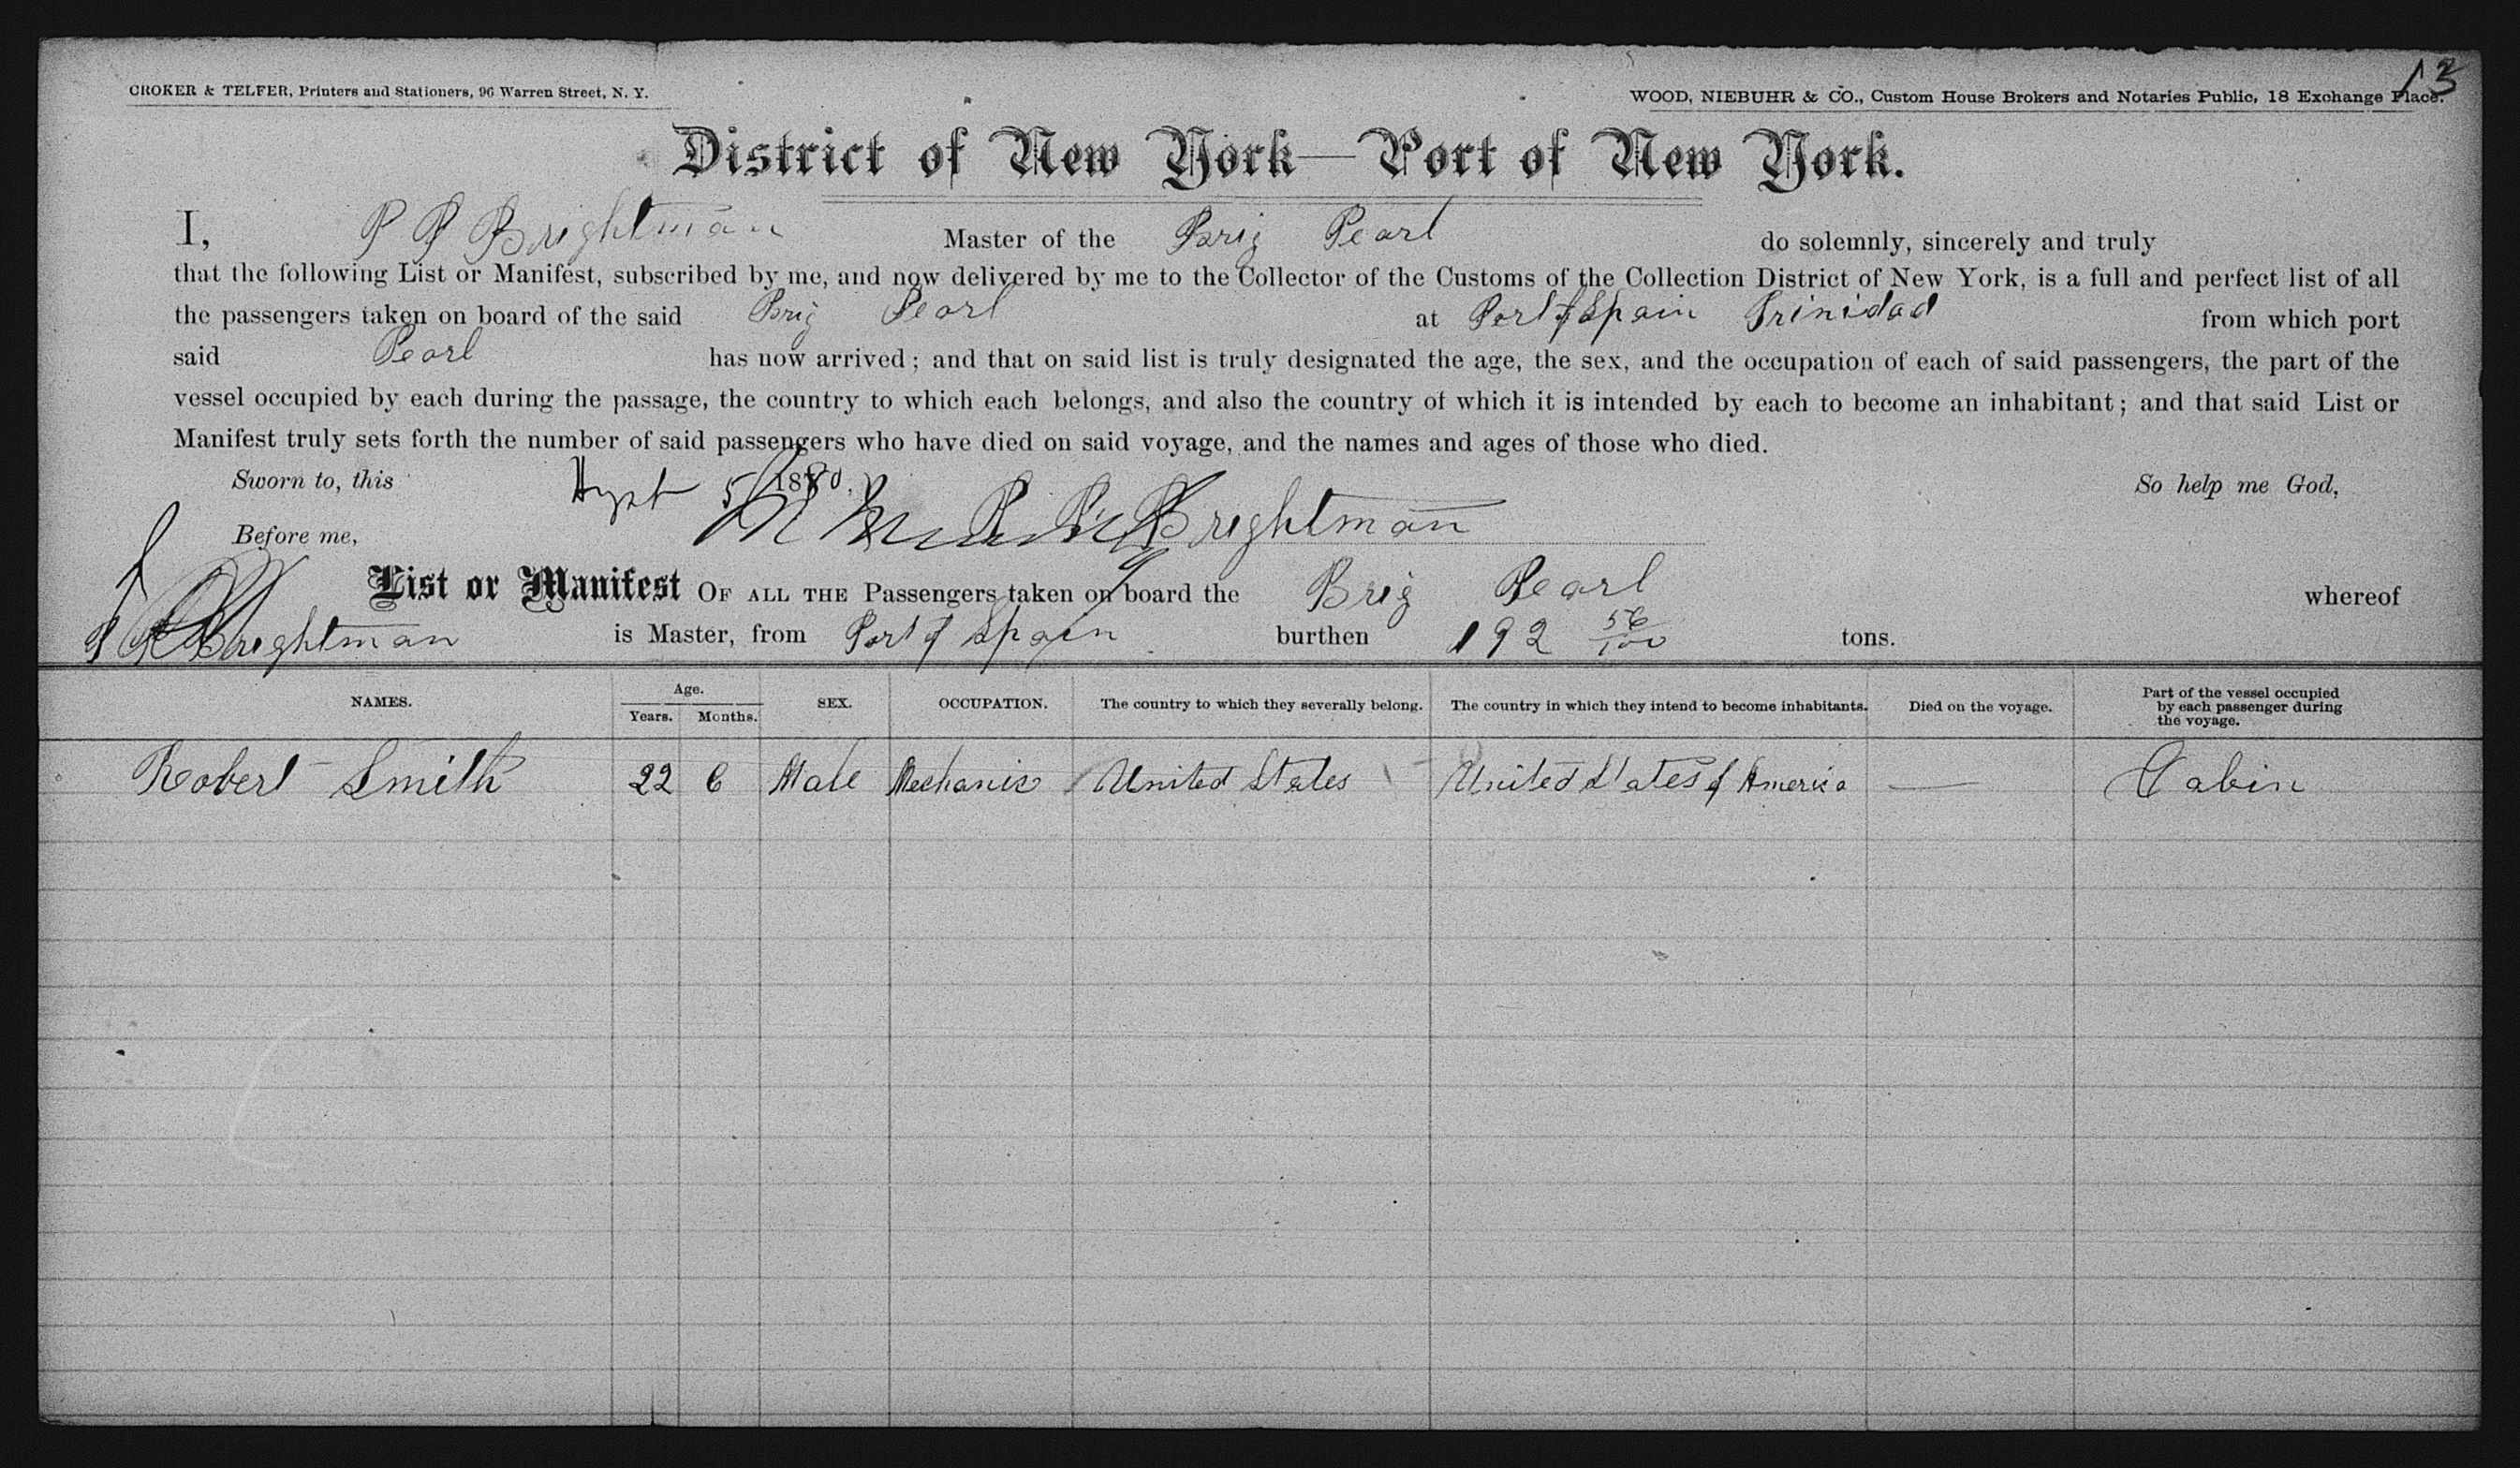 CROKER & TELFER, Printers and Stationers, 96 Warren Street, N. Y.
WOOD, NIEBUHR & CO., Custom House Brokers and Notaries Public, 18 Exchange Place.
13
District of New York—Port of New York.
I, P P Brightman Master of the Brig Pearl do solemnly, sincerely and truly
that the following List or Manifest, subscribed by me, and now delivered by me to the Collector of the Customs of the Collection District of New York, is a full and perfect list of all
the passengers taken on board of the said Brig Pearl at Port of Spain Trinidad from which port
said Pearl has now arrived; and that on said list is truly designated the age, the sex, and the occupation of each of said passengers, the part of the
vessel occupied by each during the passage, the country to which each belongs, and also the country of which it is intended by each to become an inhabitant; and that said List or
Manifest truly sets forth the number of said passengers who have died on said voyage, and the names and ages of those who died.
Sworn to, this 5 1880. So help me God,
Before me, P P Brightman
List or Manifest OF ALL THE Passengers taken on board the Brig Pearl whereof
Brightman is Master, from Port of Spain burthen 192 56/100 tons.
NAMES. Age. Years. Months. SEX. OCCUPATION. The country to which they severally belong. The country in which they intend to become inhabitants. Died on the voyage. Part of the vessel occupied by each passenger during the voyage.
Robert Smith 22 6 Male Mechanic United States United States of America — Cabin